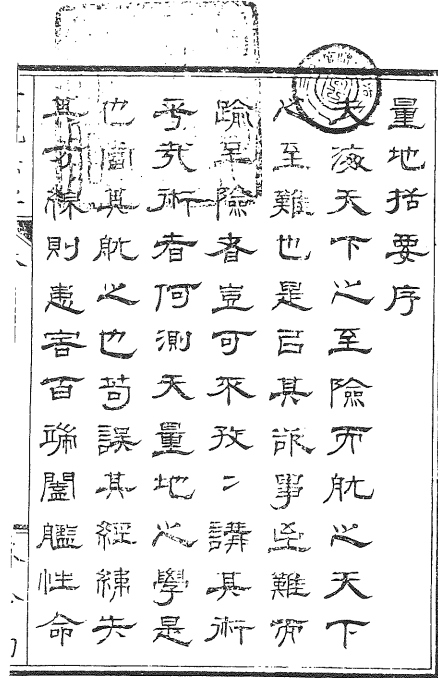 量地括要序
夫海天下之至險而航之天下
之至難也是㠯其事至難而
踰至險者豈可不孜〻講其術
乎哉術者何測天量地之學是
也其航之也苟誤其經緯失
其方線則患害百端闔艦性命